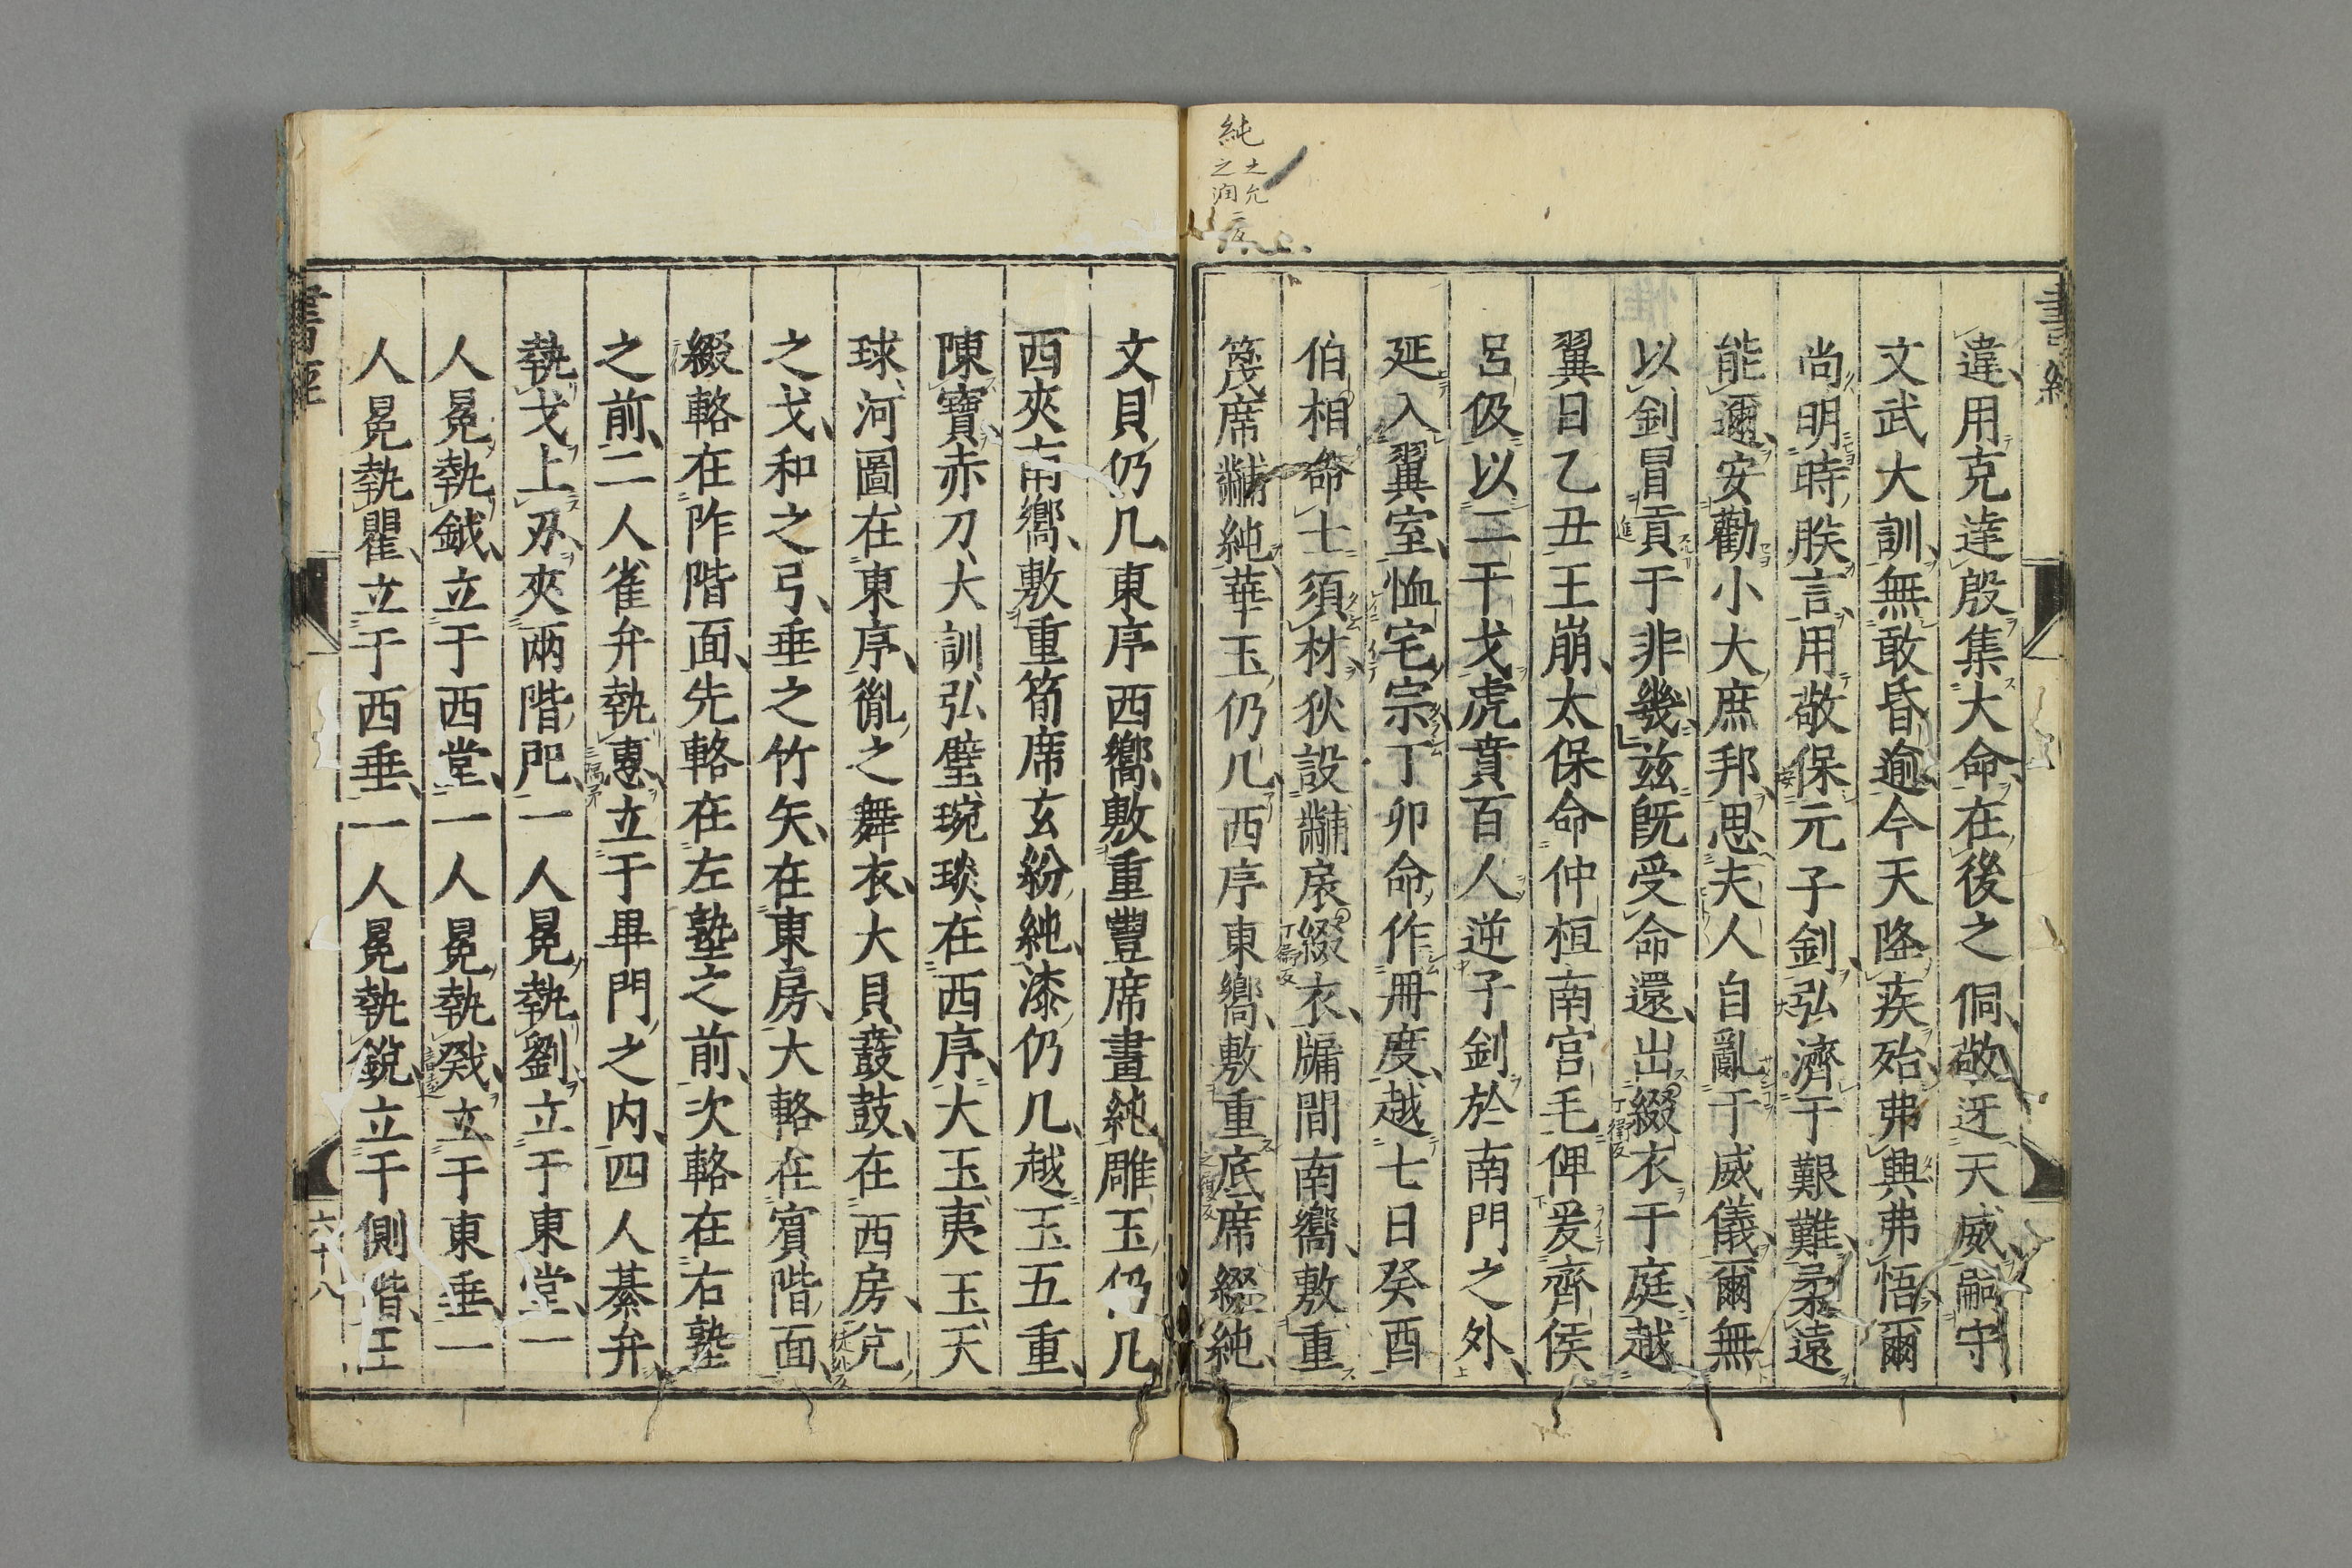 書經
違用克達殷集大命在後之侗敬迓天威嗣守
文武大訓無敢昏逾今天降疾殆弗興弗悟爾
尚明時朕言用敬保元子釗弘濟于艱難柔遠
能邇安勸小大庶邦思夫人自亂于威儀爾無
以釗冒貢于非幾茲既受命還出綴衣于庭越
翼日乙丑王崩太保命仲桓南宮毛俾爰齊侯
呂伋以二干戈虎賁百人逆子釗於南門之外
延入翼室恤宅宗丁卯命作冊度越七日癸酉
伯相命士須材狄設黼扆綴衣牖間南嚮敷重
篾席黼純華玉仍几西序東嚮敷重底席綴純
純 之允 之潤 二反
文貝仍几東序西嚮敷重豐席畫純雕玉仍几
西夾南嚮敷重筍席玄紛純漆仍几越玉五重
陳寶赤刀大訓弘璧琬琰在西序大玉夷玉天
球河圖在東序胤之舞衣大貝鼖鼓在西房兌
之戈和之弓垂之竹矢在東房大輅在賓階面
綴輅在阼階面先輅在左塾之前次輅在右塾
之前二人雀弁執惠立于畢門之內四人綦弁
執戈上刃夾兩階戺一人冕執劉立于東堂一
人冕執鉞立于西堂一人冕執戣立于東垂一
人冕執瞿立于西垂一人冕執銳立于側階王
書經
六十八